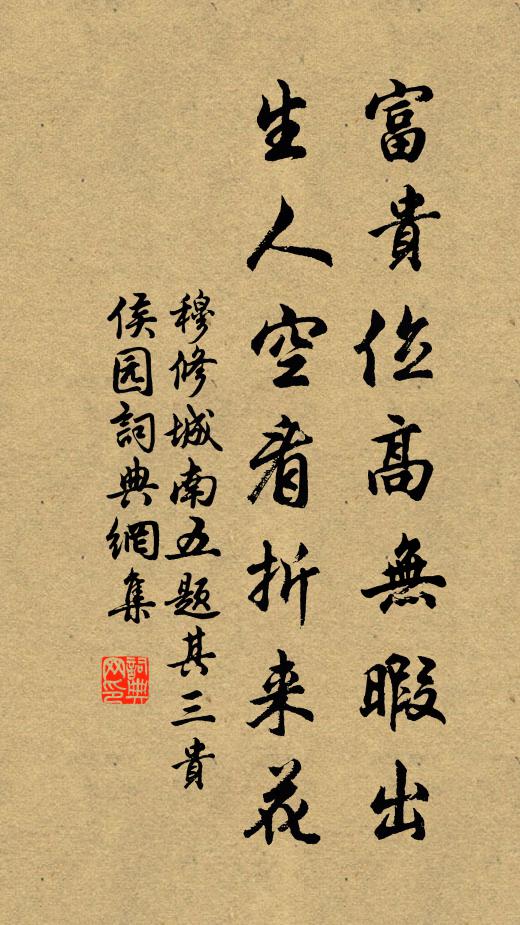 富貴位高無暇出
生人空看折来花
穆修城南五題其三貴
侯园詞典網集
詞典网印